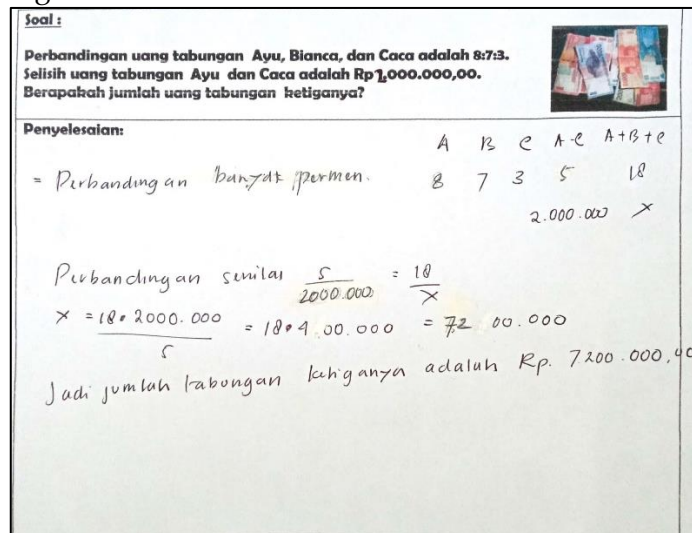 Soal :
Perbandingan uang tabungan Ayu, Bianca, dan Caca adalah 8:7:3.
Selisih uang tabungan Ayu dan Caca adalah Rp 2.000.000,00.
Berapakah jumlah uang tabungan ketiganya?
Penyelesaian:
A B C A-C A+B+C
= Perbandingan banyak permen. 8 7 3 5 18
2.000.000 x
Perbandingan senilai 5/2000.000 = 18/x
x = 18 • 2000.000/5 = 18 • 4 00.000 = 72 00.000
Jadi jumlah tabungan ketiganya adalah Rp. 7200.000,